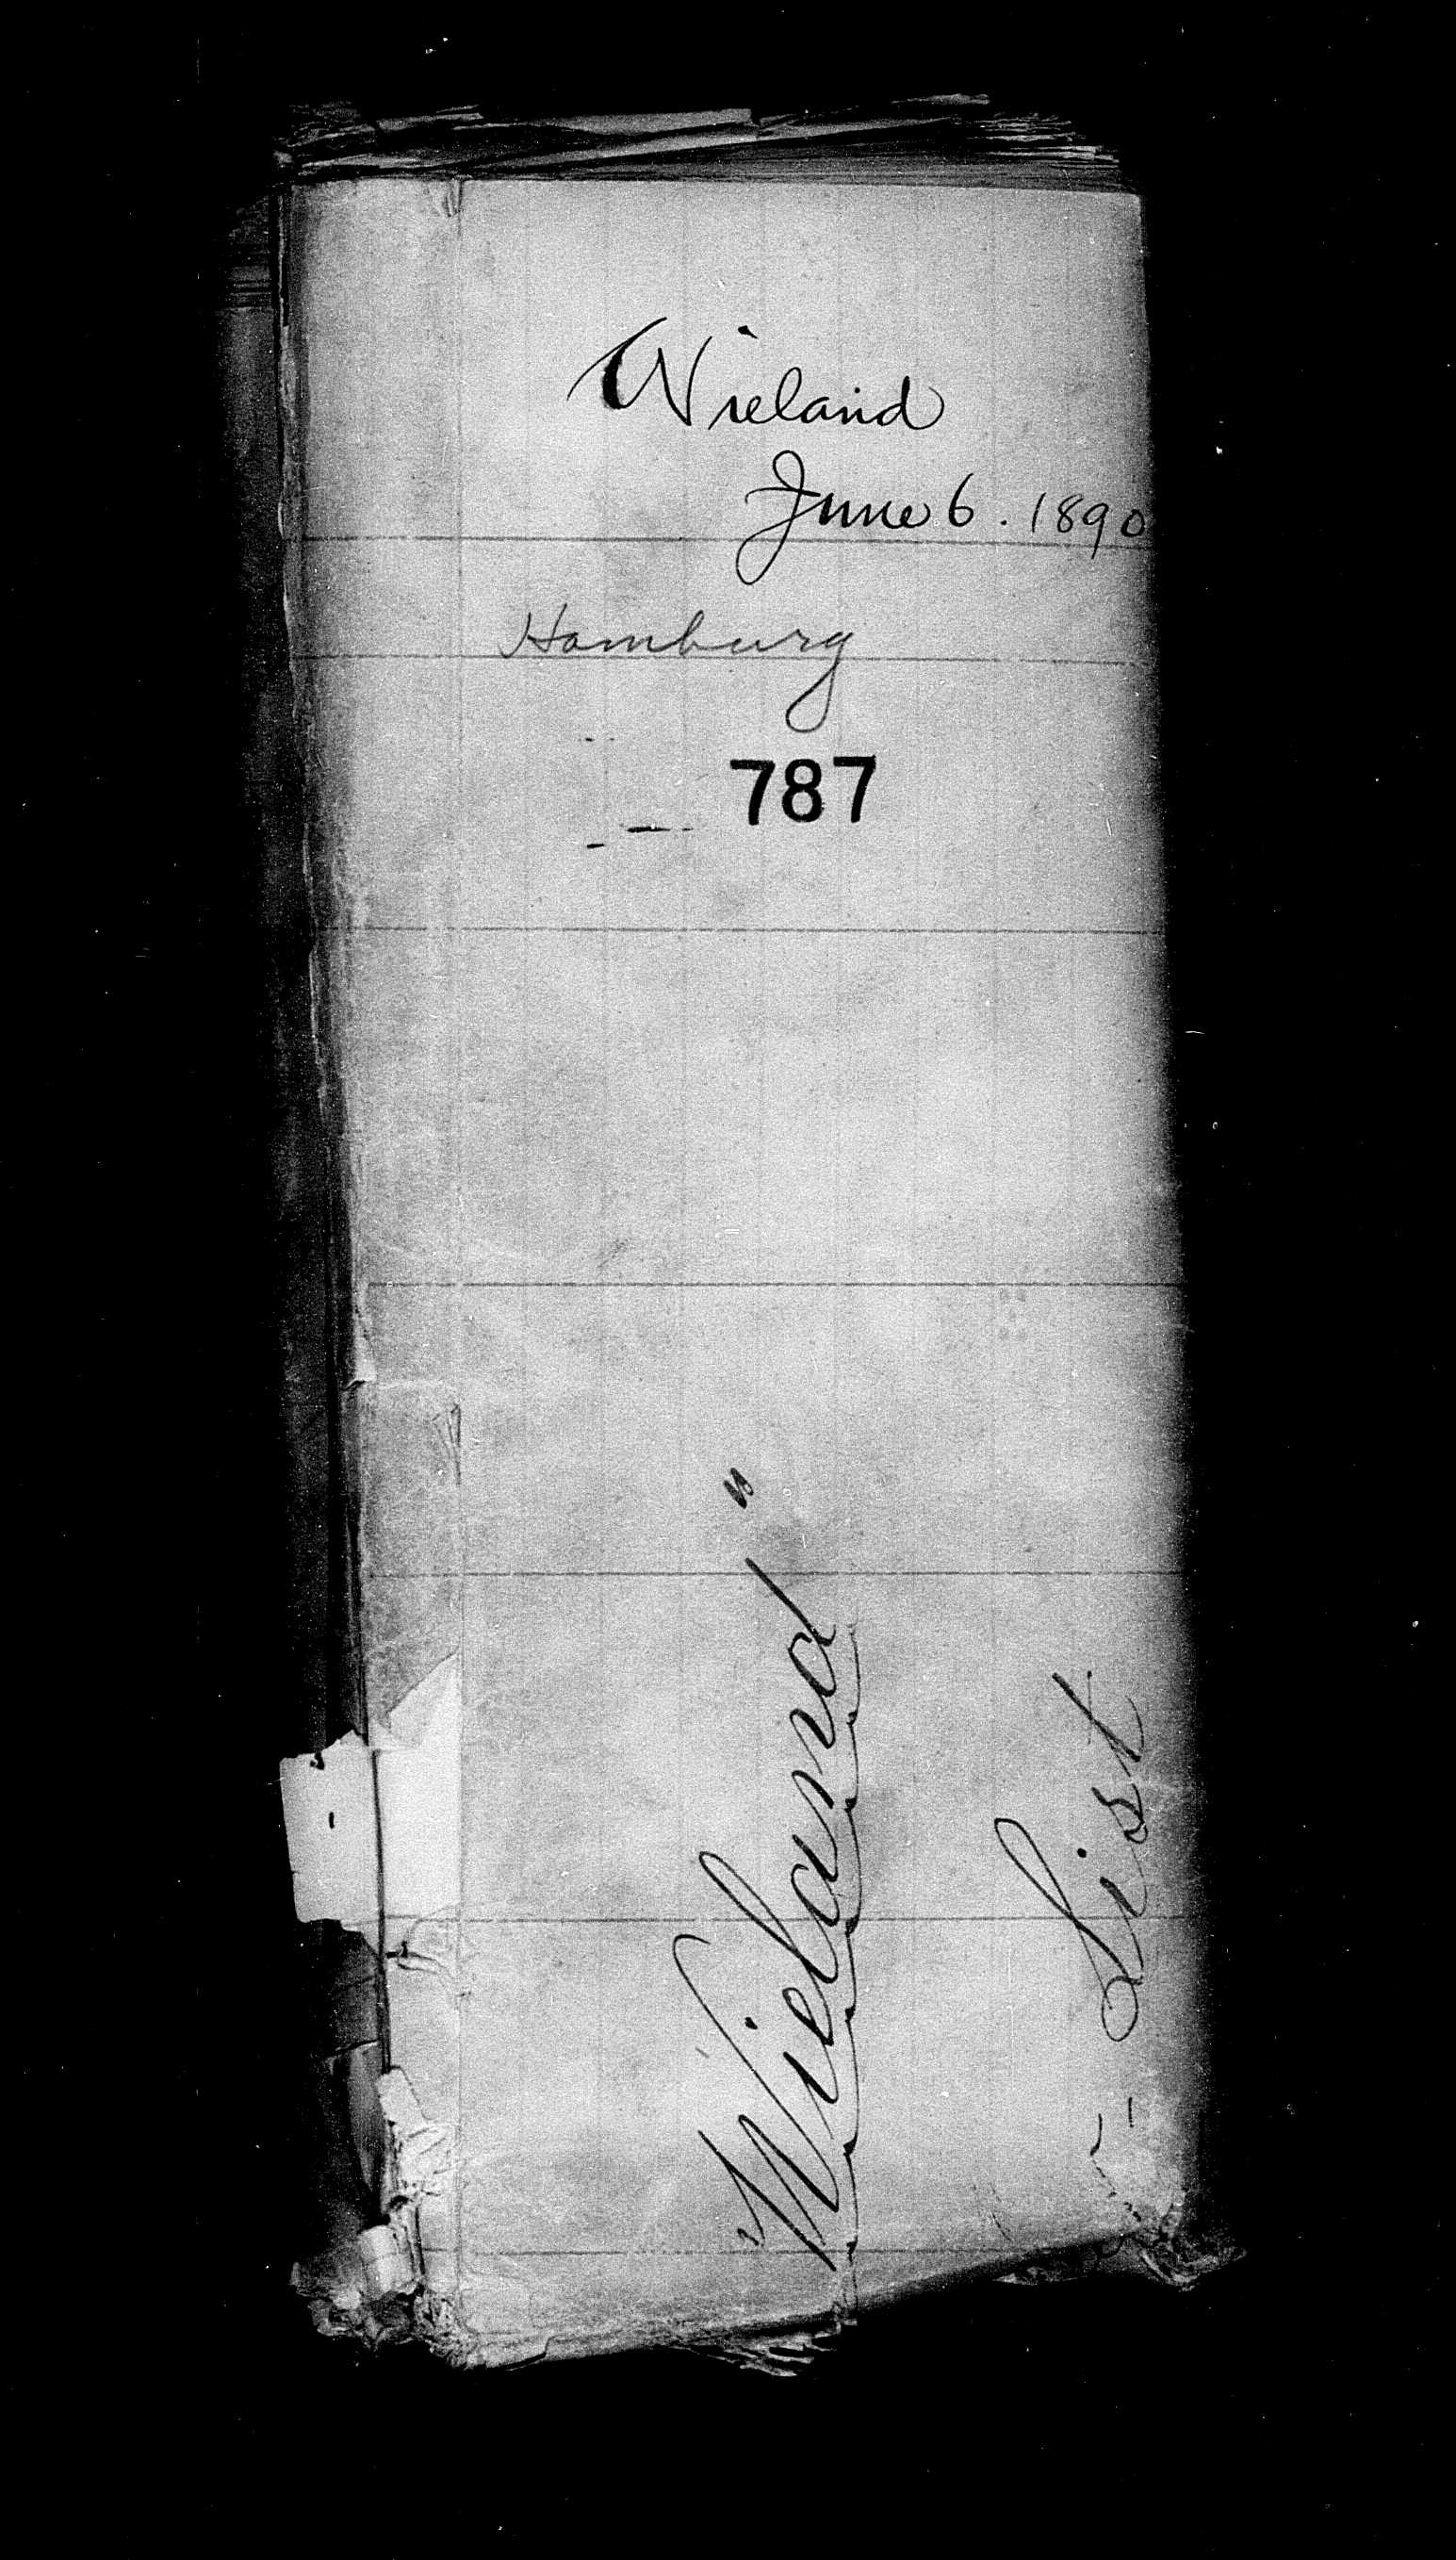 Wieland
June 6. 1890
Hamburg
787
"Wieland"
List